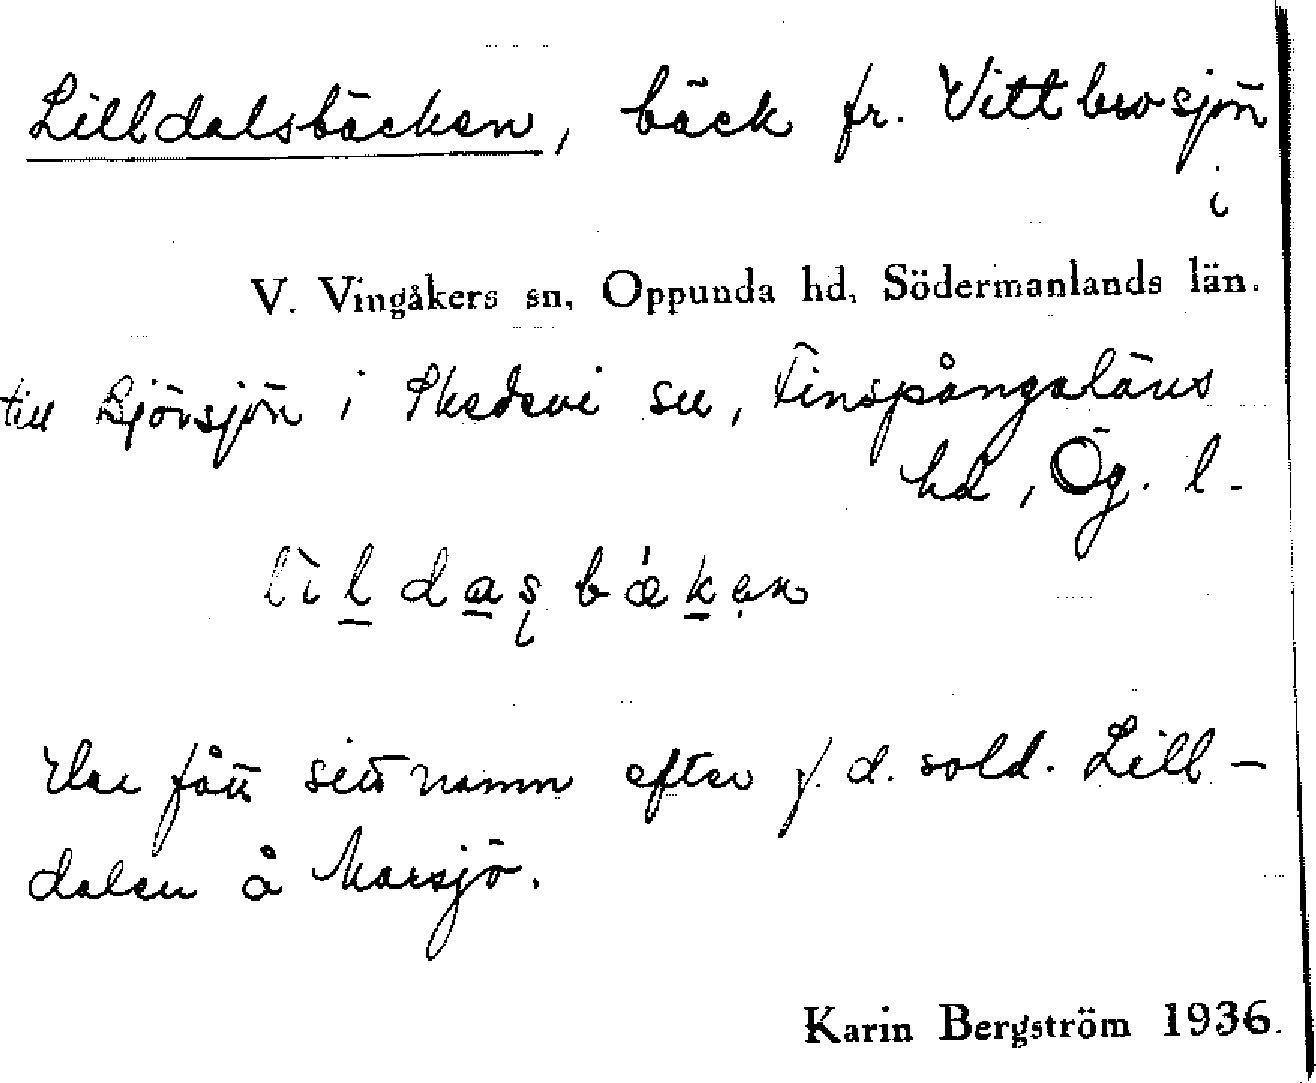 Lilldalsbäcken, bäck fr. Vittbrosjön
i
V. Vingåkers sn, Oppunda hd, Södermanlands län.
till Björsjön i Skedevi sn, Finspångaläns
hd, Ög. l.
lìldasbǽkən
Har fått sitt namn efter f. d. sold. Lill-
dalen å Marsjö.
Karin Bergström 1936.